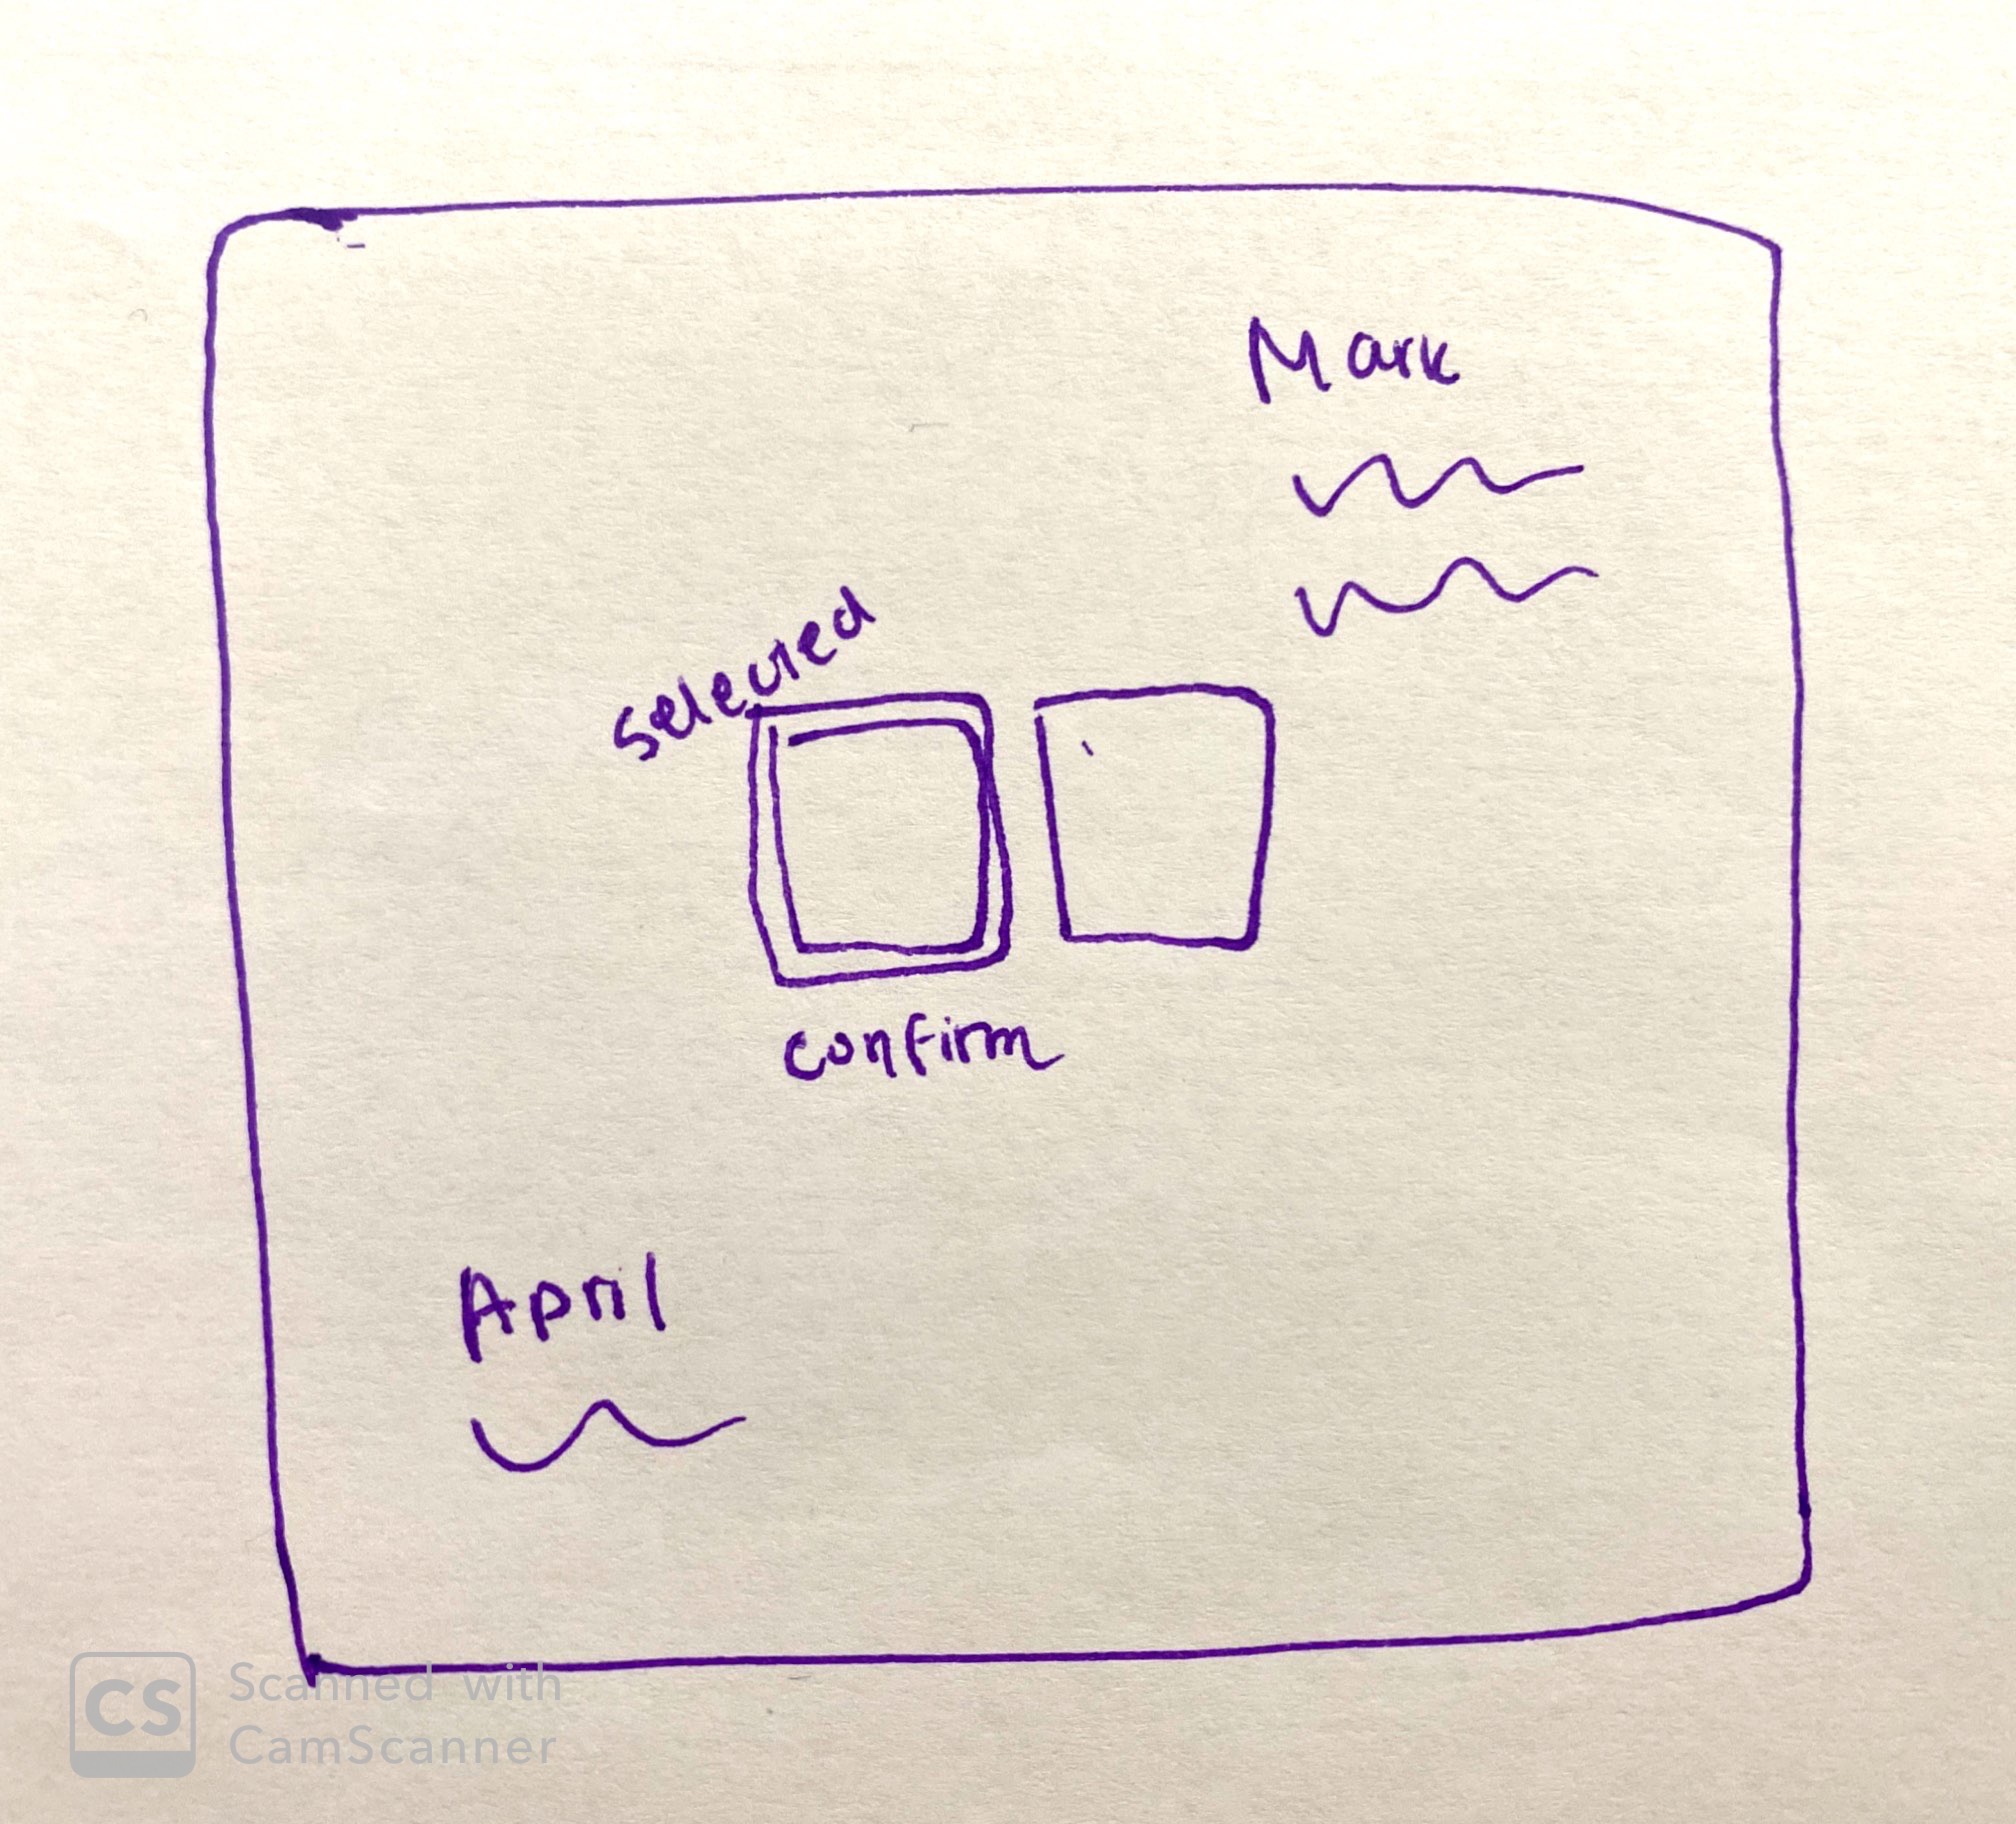 Mark
selected
confirm
April
CS
Scanned with
CamScanner